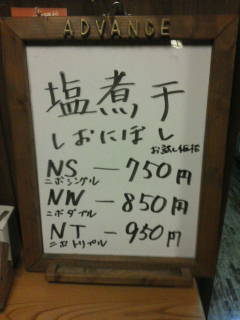 ADVANCE
塩煮干
しおにぼし
お試し価格
NS — 750円
ニボシングル
NW — 850円
ニボダブル
NT — 950円
ニボトリプル